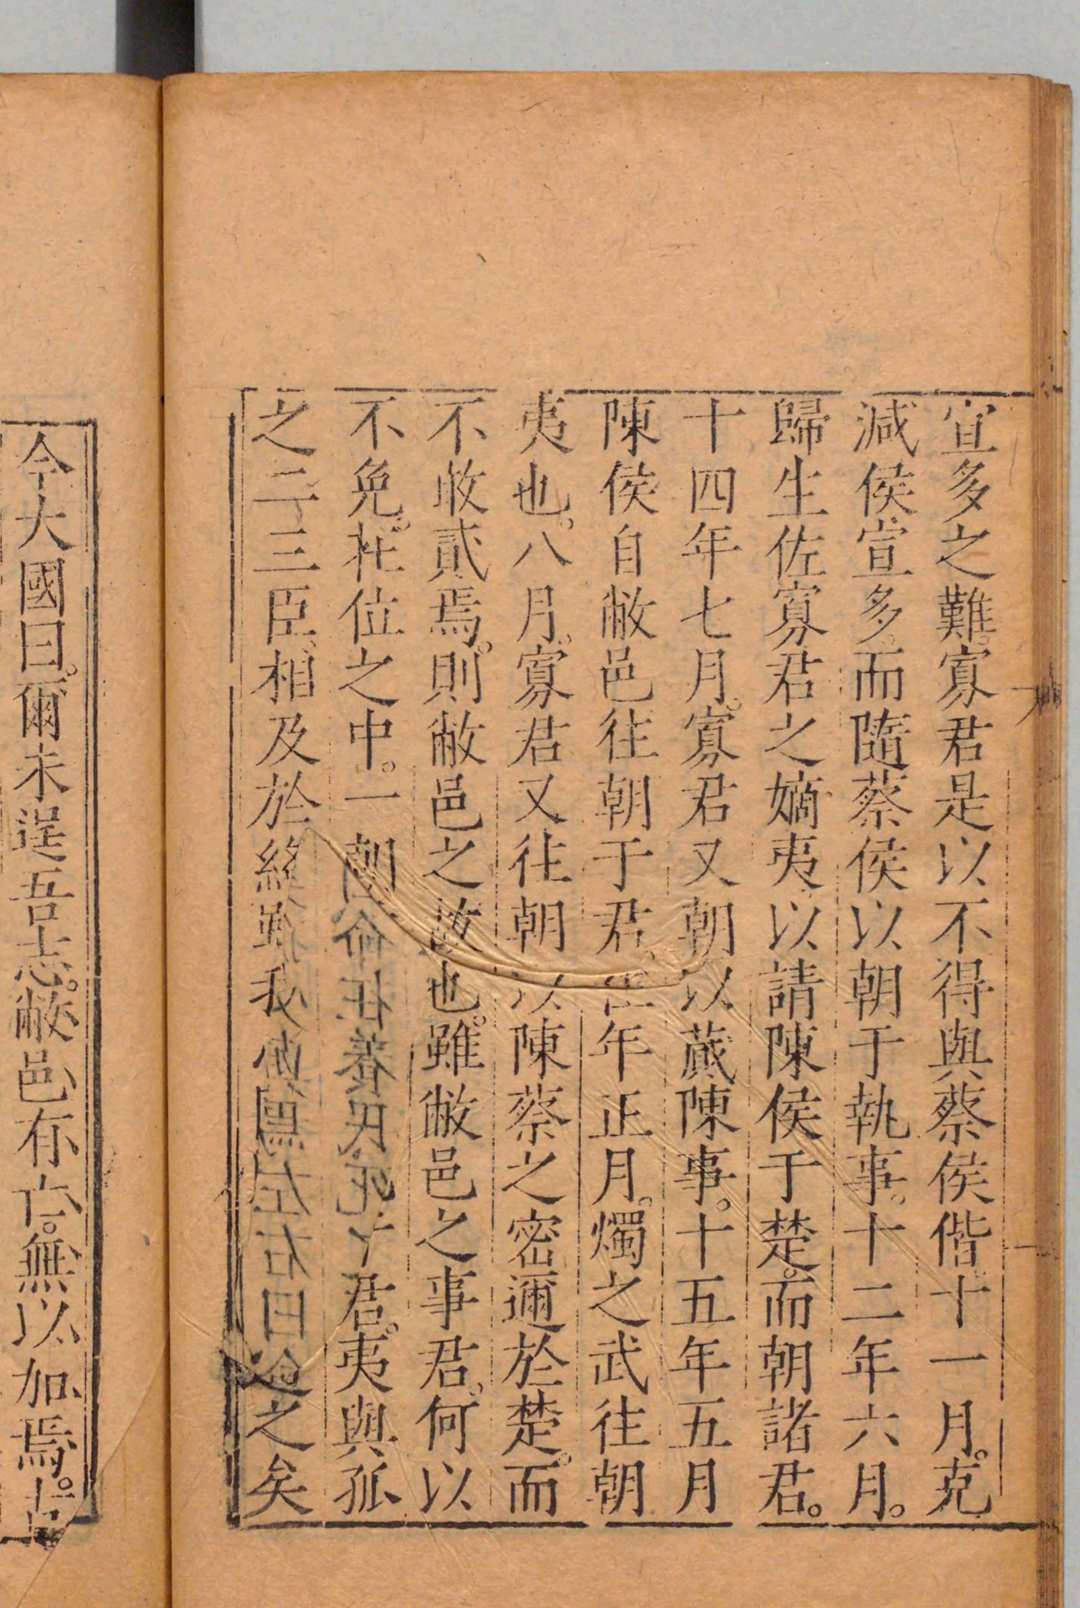 宣多之難。寡君是以不得與蔡侯偕十一月。克
減侯宣多、而隨蔡侯以朝于執事。十二年六月。
歸生佐寡君之嫡夷、以請陳侯于楚。而朝諸君。
十四年七月。寡君又朝以蕆陳事。十五年五月
陳侯自敝邑往朝于君。往年正月。燭之武往朝
夷也。八月。寡君又往朝以陳蔡之密邇於楚。而
不敢貳焉。則敝邑之故也。雖敝邑之事君、何以
不免。在位之中。一君。夷與孤
之二三臣、相及於絳雖我之矣
今大國曰。爾未逞吾志。敝邑有亡。無以加焉。古